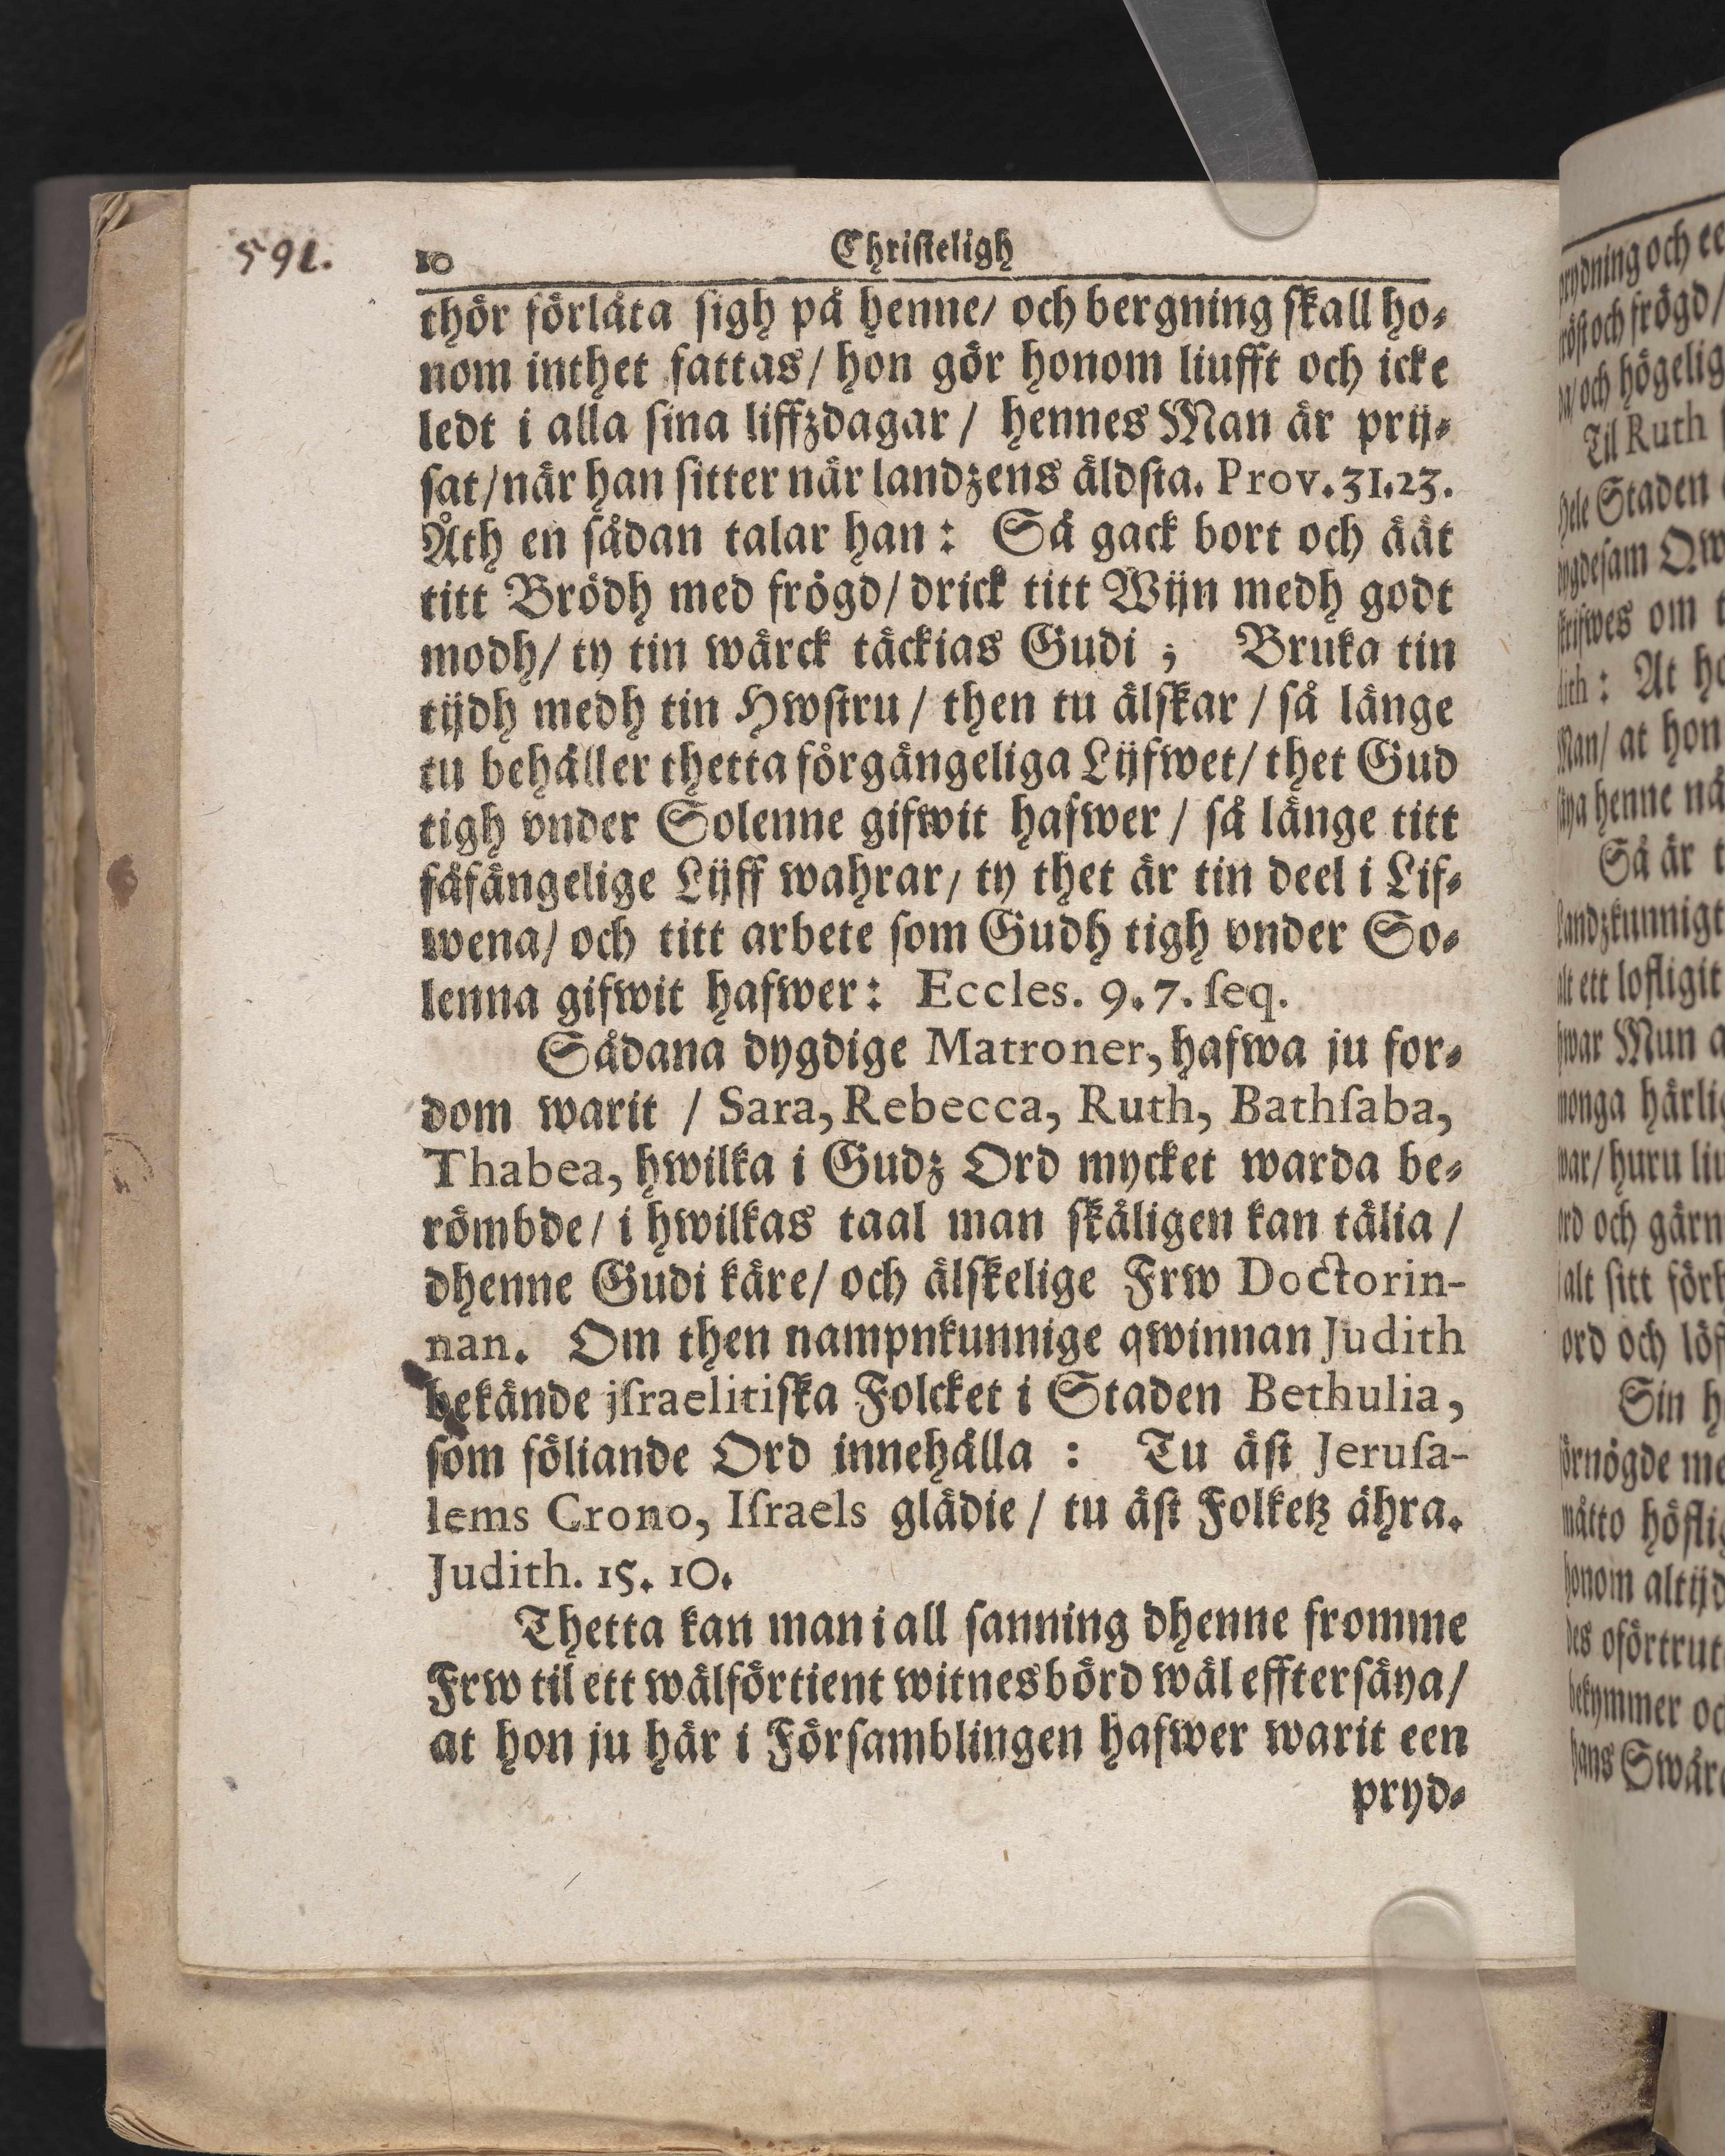 591.
10 Christeligh
thör förlåta sigh på henne/ och bergning skall ho-
nom inthet fattas/ hon gör honom liufft och icke
ledt i alla sina liffzdagar/ hennes Man är prij-
sat/när han sitter när landzens äldsta. Prov. 31.23.
Åth en sådan talar han: Så gack bort och äät
titt Brödh med frögd/ drick titt Wijn medh godt
modh/ ty tin wärck täckias Gudi; Bruka tin
tijdh medh tin Hwstru/ then tu älskar/ så länge
tu behåller thetta förgängeliga Lijfwet/ thet Gud
tigh vnder Solenne gifwit hafwer/ så länge titt
fåfängelige Lijff wahrar/ ty thet är tin deel i Lif-
wena/ och titt arbete som Gudh tigh vnder So-
lenna gifwit hafwer: Eccles. 9.7. seq.
Sådana dygdige Matroner, hafwa ju for-
dom warit / Sara, Rebecca, Ruth, Bathsaba,
Thabea, hwilka i Gudz Ord mycket warda be-
römbde/ i hwilkas taal man skäligen kan tälia/
dhenne Gudi käre/ och älskelige Frw Doctorin-
nan. Om then nampnkunnige qwinnan Judith
bekände jsraelitiska Folcket i Staden Bethulia,
som föliande Ord innehålla: Tu äst Jerusa-
lems Crono, Israels glädie/ tu äst Folketz ähra.
Judith. 15. 10.
Thetta kan man i all sanning dhenne fromme
Frw til ett wälförtient witnesbörd wäl efftersäya/
at hon ju här i Församblingen hafwer warit een
pryd-
och
och frögd/
och högelig
Til Ruth
Staden
om
: At
at hon
henne
Så är
ett lofligit
Mun
härlig
huru
och
sitt
ord och
Sin
altijd